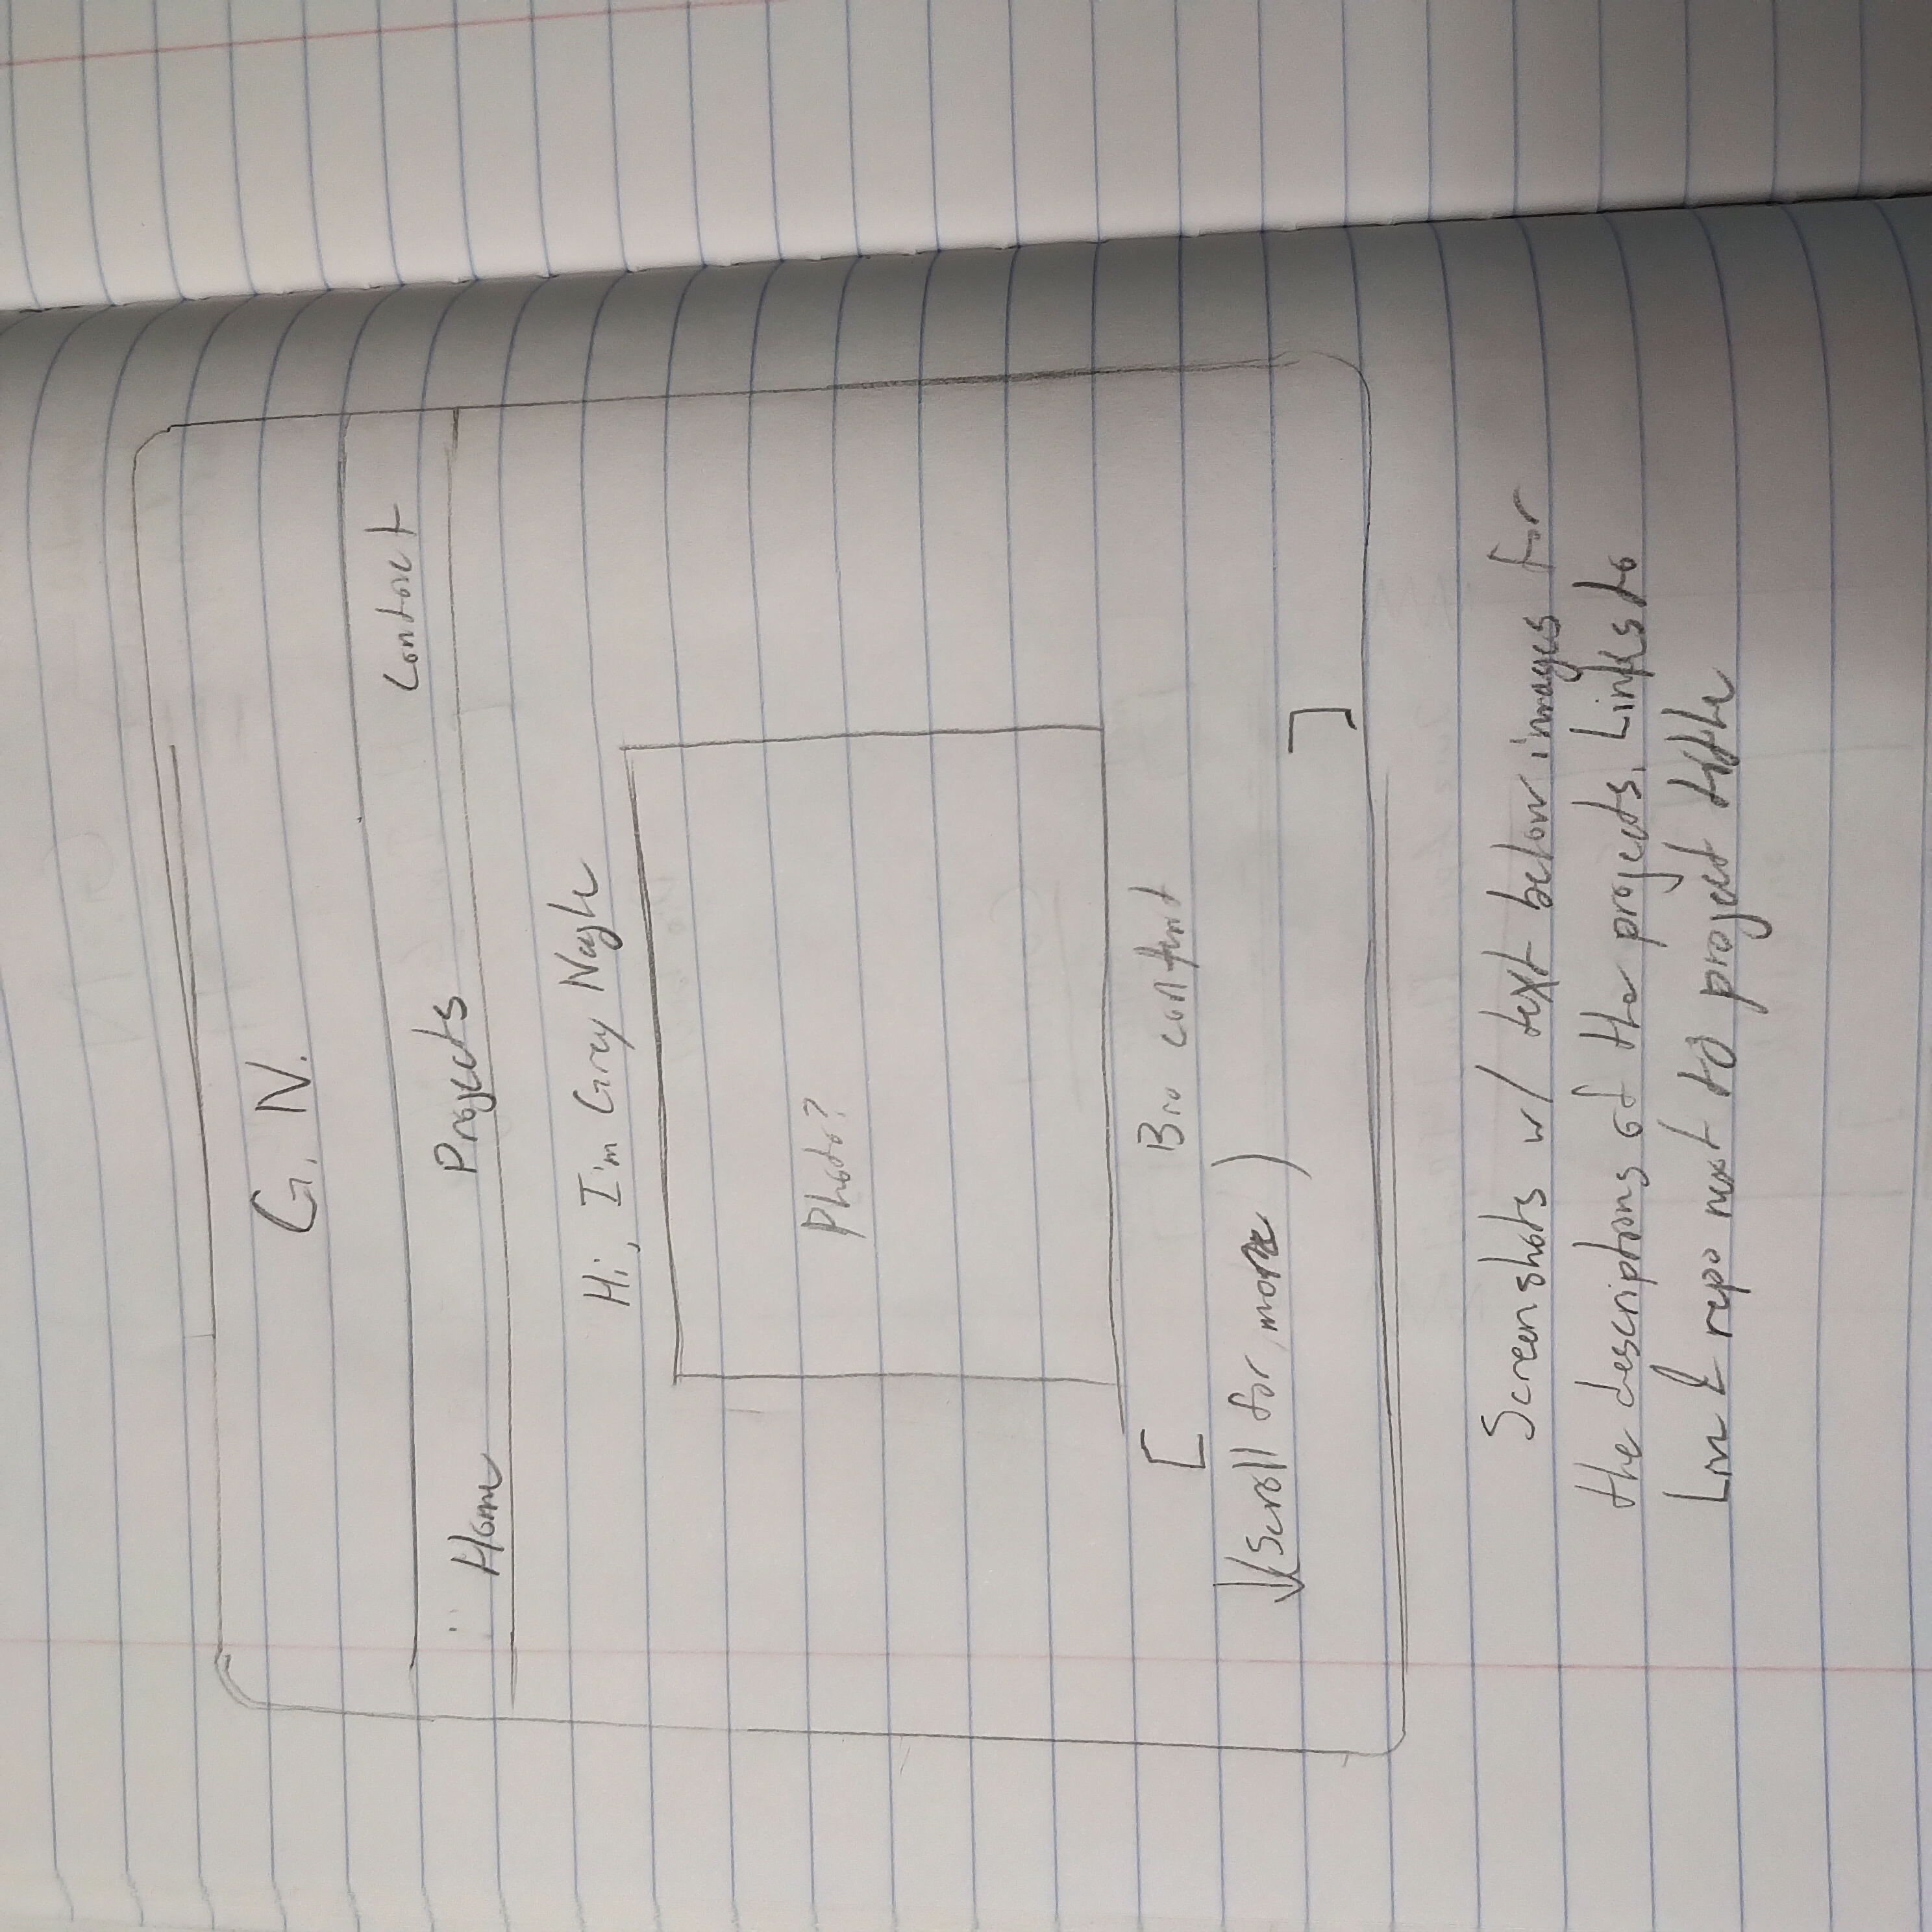 G. N.
Home Projects Contact
Hi, I'm Grey Nagle
Photo?
[ Bio content
↓(Scroll for more)
]
Screenshots w/ text below images for
the descriptions of the projects. Links to
Live & repo next to project title